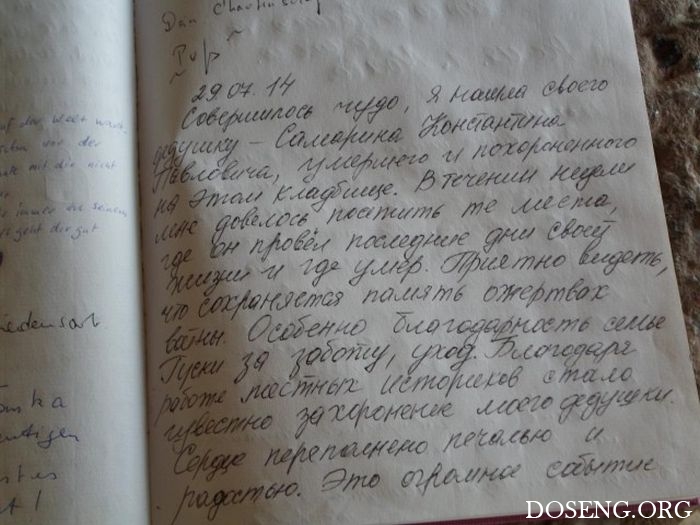 Pup
29.07.14
Совершилось чудо, я нашла своего
дедушку - Самарина Константина
Павловича, умершего и похороненного
на этом кладбище. В течении недели
мне довелось посетить те места,
где он провёл последние дни своей
жизни и где умер. Приятно видеть,
что сохраняется память о жертвах
войны. Особенно благодарность семье
Гуски за заботу, уход. Благодаря
работе местных историков стало
известно захоронение моего дедушки.
Сердце переполнено печалью и
радостью. Это огромное событие
auf der Welt
mit dir nicht
immer in seinem
geht dir gut
DOSENG.ORG